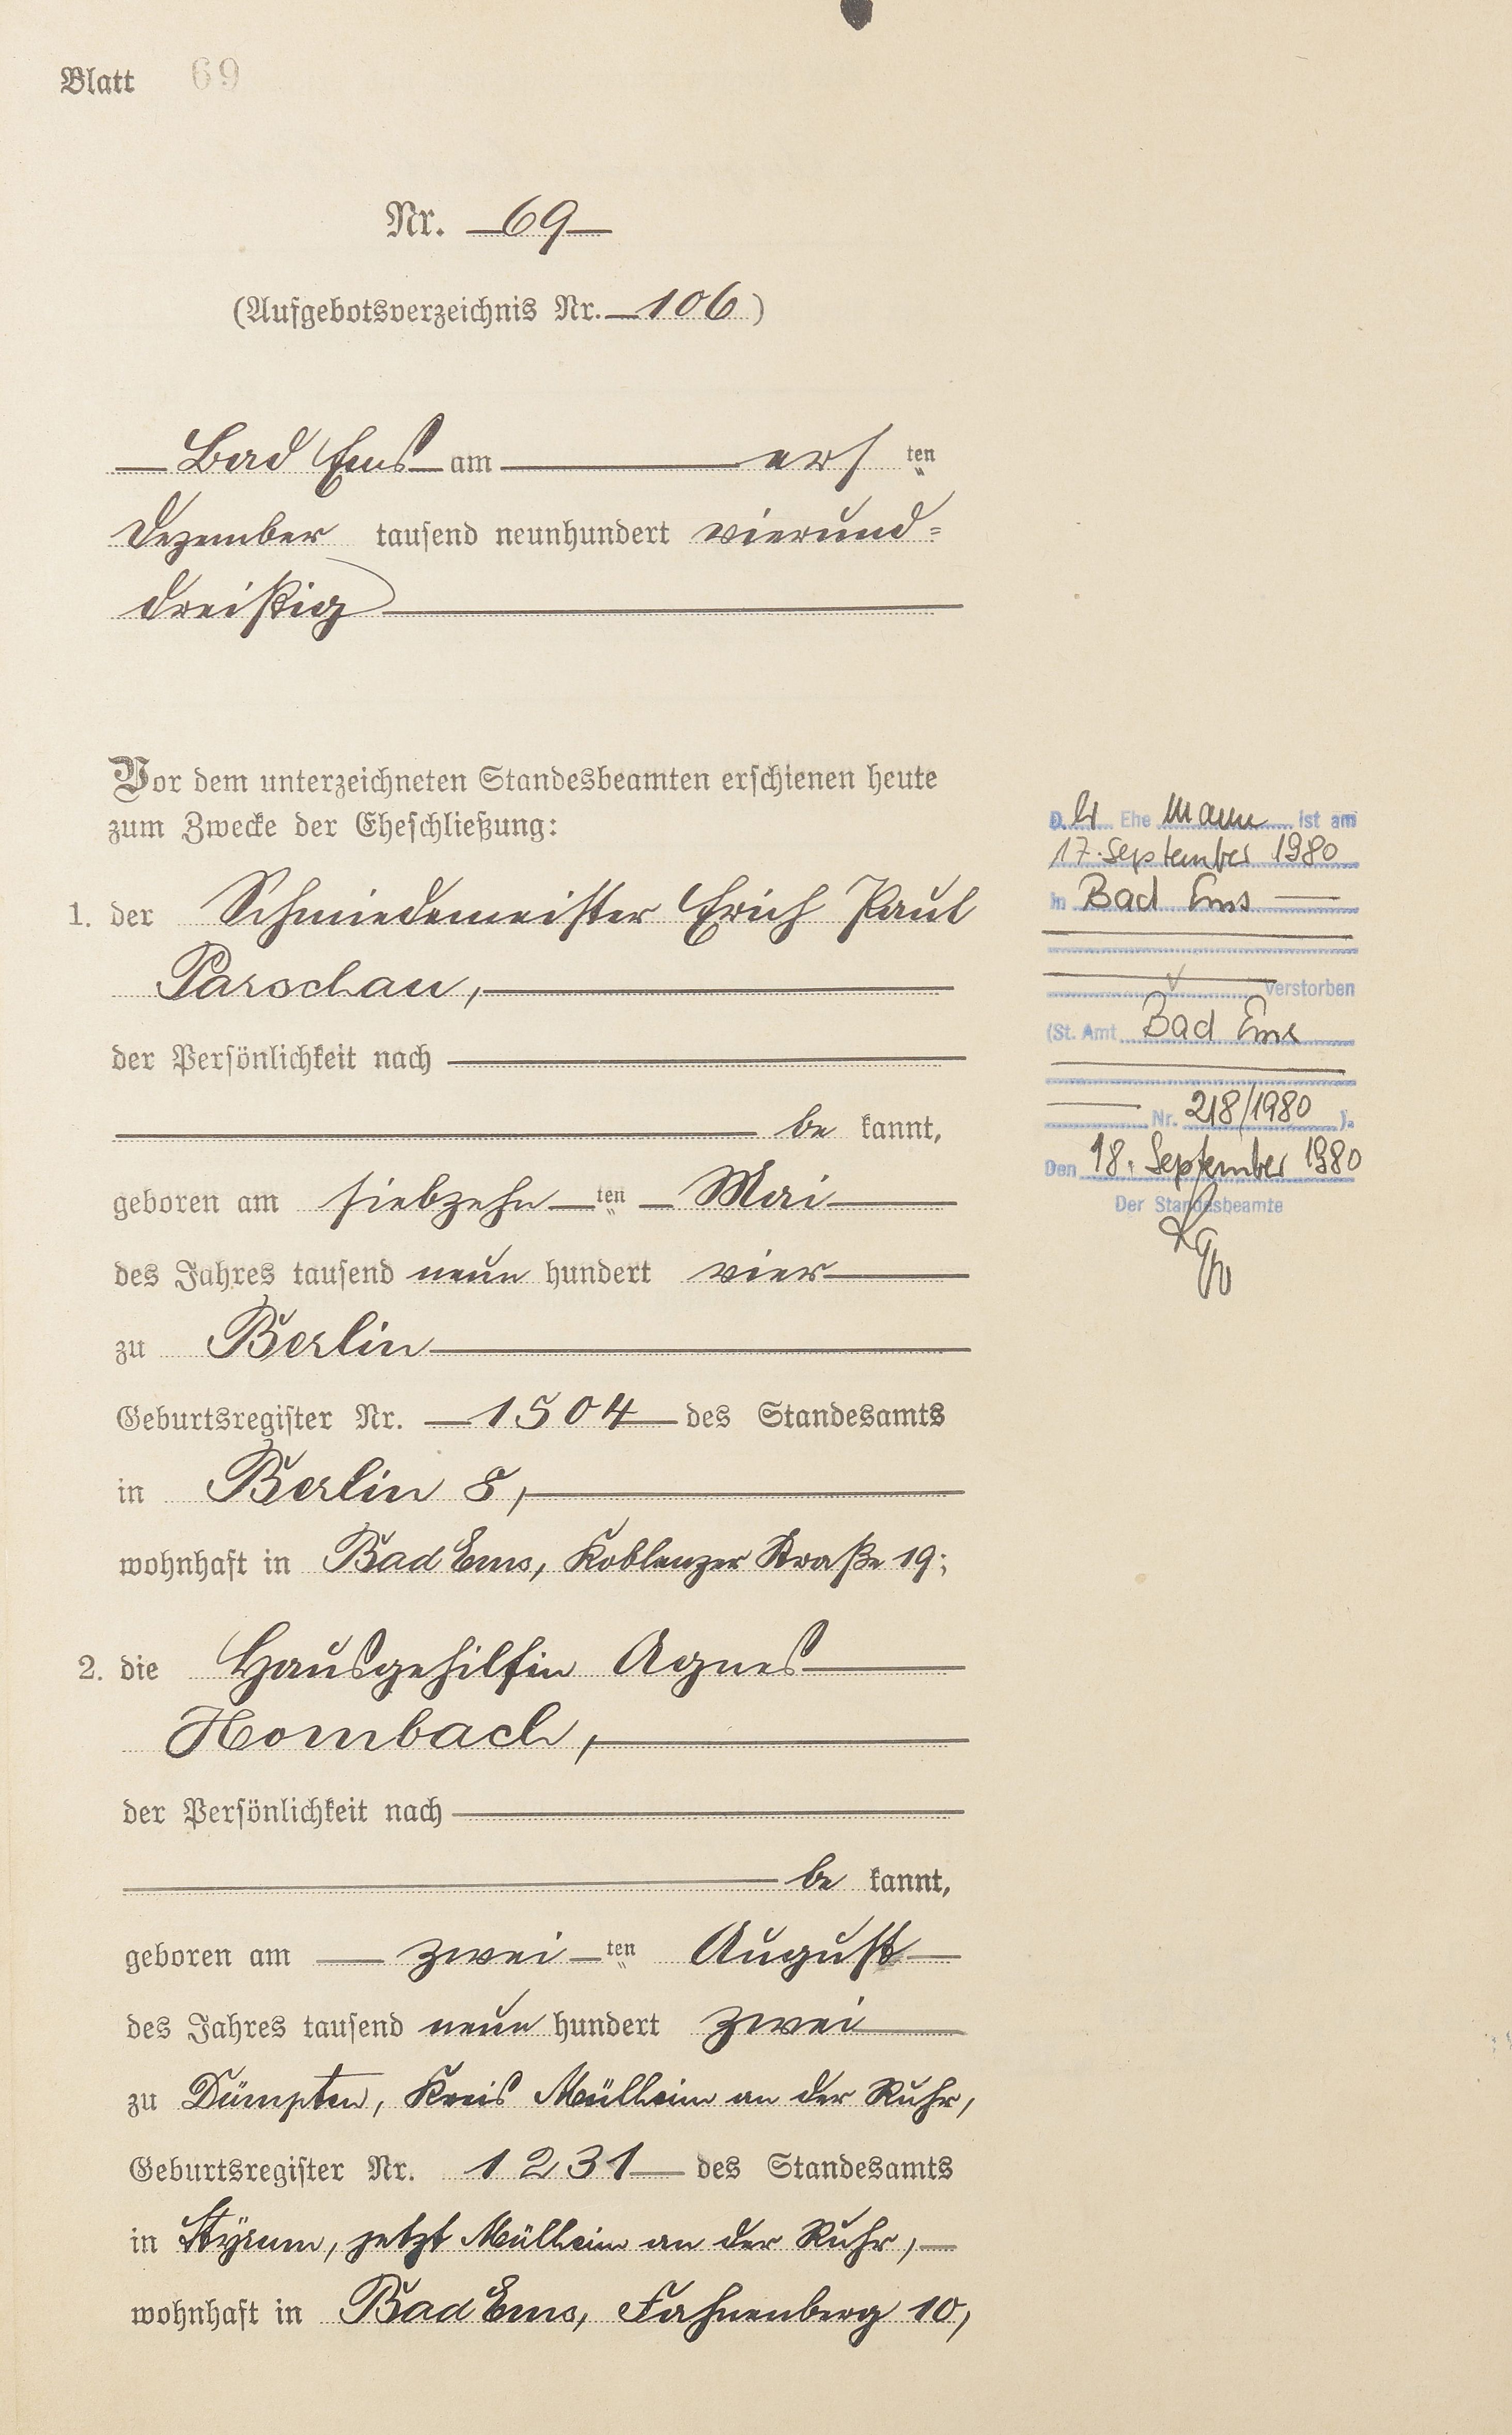 Blatt 69
Nr. 69
(Aufgebotsverzeichnis Nr. 106)
Bad Ems am ersten
Dezember tausend neunhundert vierund=
dreißig
Vor dem unterzeichneten Standesbeamten erschienen heute
zum Zwecke der Eheschließung:
1. der Schmiedemeister Erich Paul
Parschau,
der Persönlichkeit nach
be kannt,
geboren am siebzehn ten Mai
des Jahres tausend neun hundert vier
zu Berlin
Geburtsregister Nr. 1504 des Standesamts
in Berlin 8,
wohnhaft in Bad Ems, Koblenzer Straße 19;
2. die Hausgehilfin Agnes
Hombach,
der Persönlichkeit nach
be kannt,
geboren am zwei ten August
des Jahres tausend neun hundert zwei
zu Dümpten, Kreis Mülheim an der Ruhr,
Geburtsregister Nr. 1231 des Standesamts
in Styrum, jetzt Mülheim an der Ruhr,
wohnhaft in Bad Ems, Fahnenberg 10,
D.er Ehe Mann ist am
17. September 1980
in Bad Ems
verstorben
(St. Amt Bad Ems
Nr. 218/1980 ).
Den 18. September 1980
Der Standesbeamte